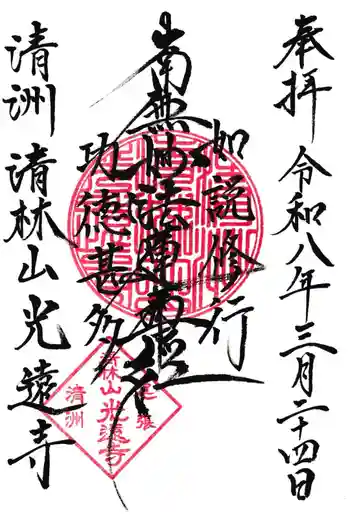 奉拝 令和八年三月二十四日
如説修行
南無妙法蓮華経
功徳甚多
清洲 清林山 光遠寺
尾張
清林山光遠寺
清洲